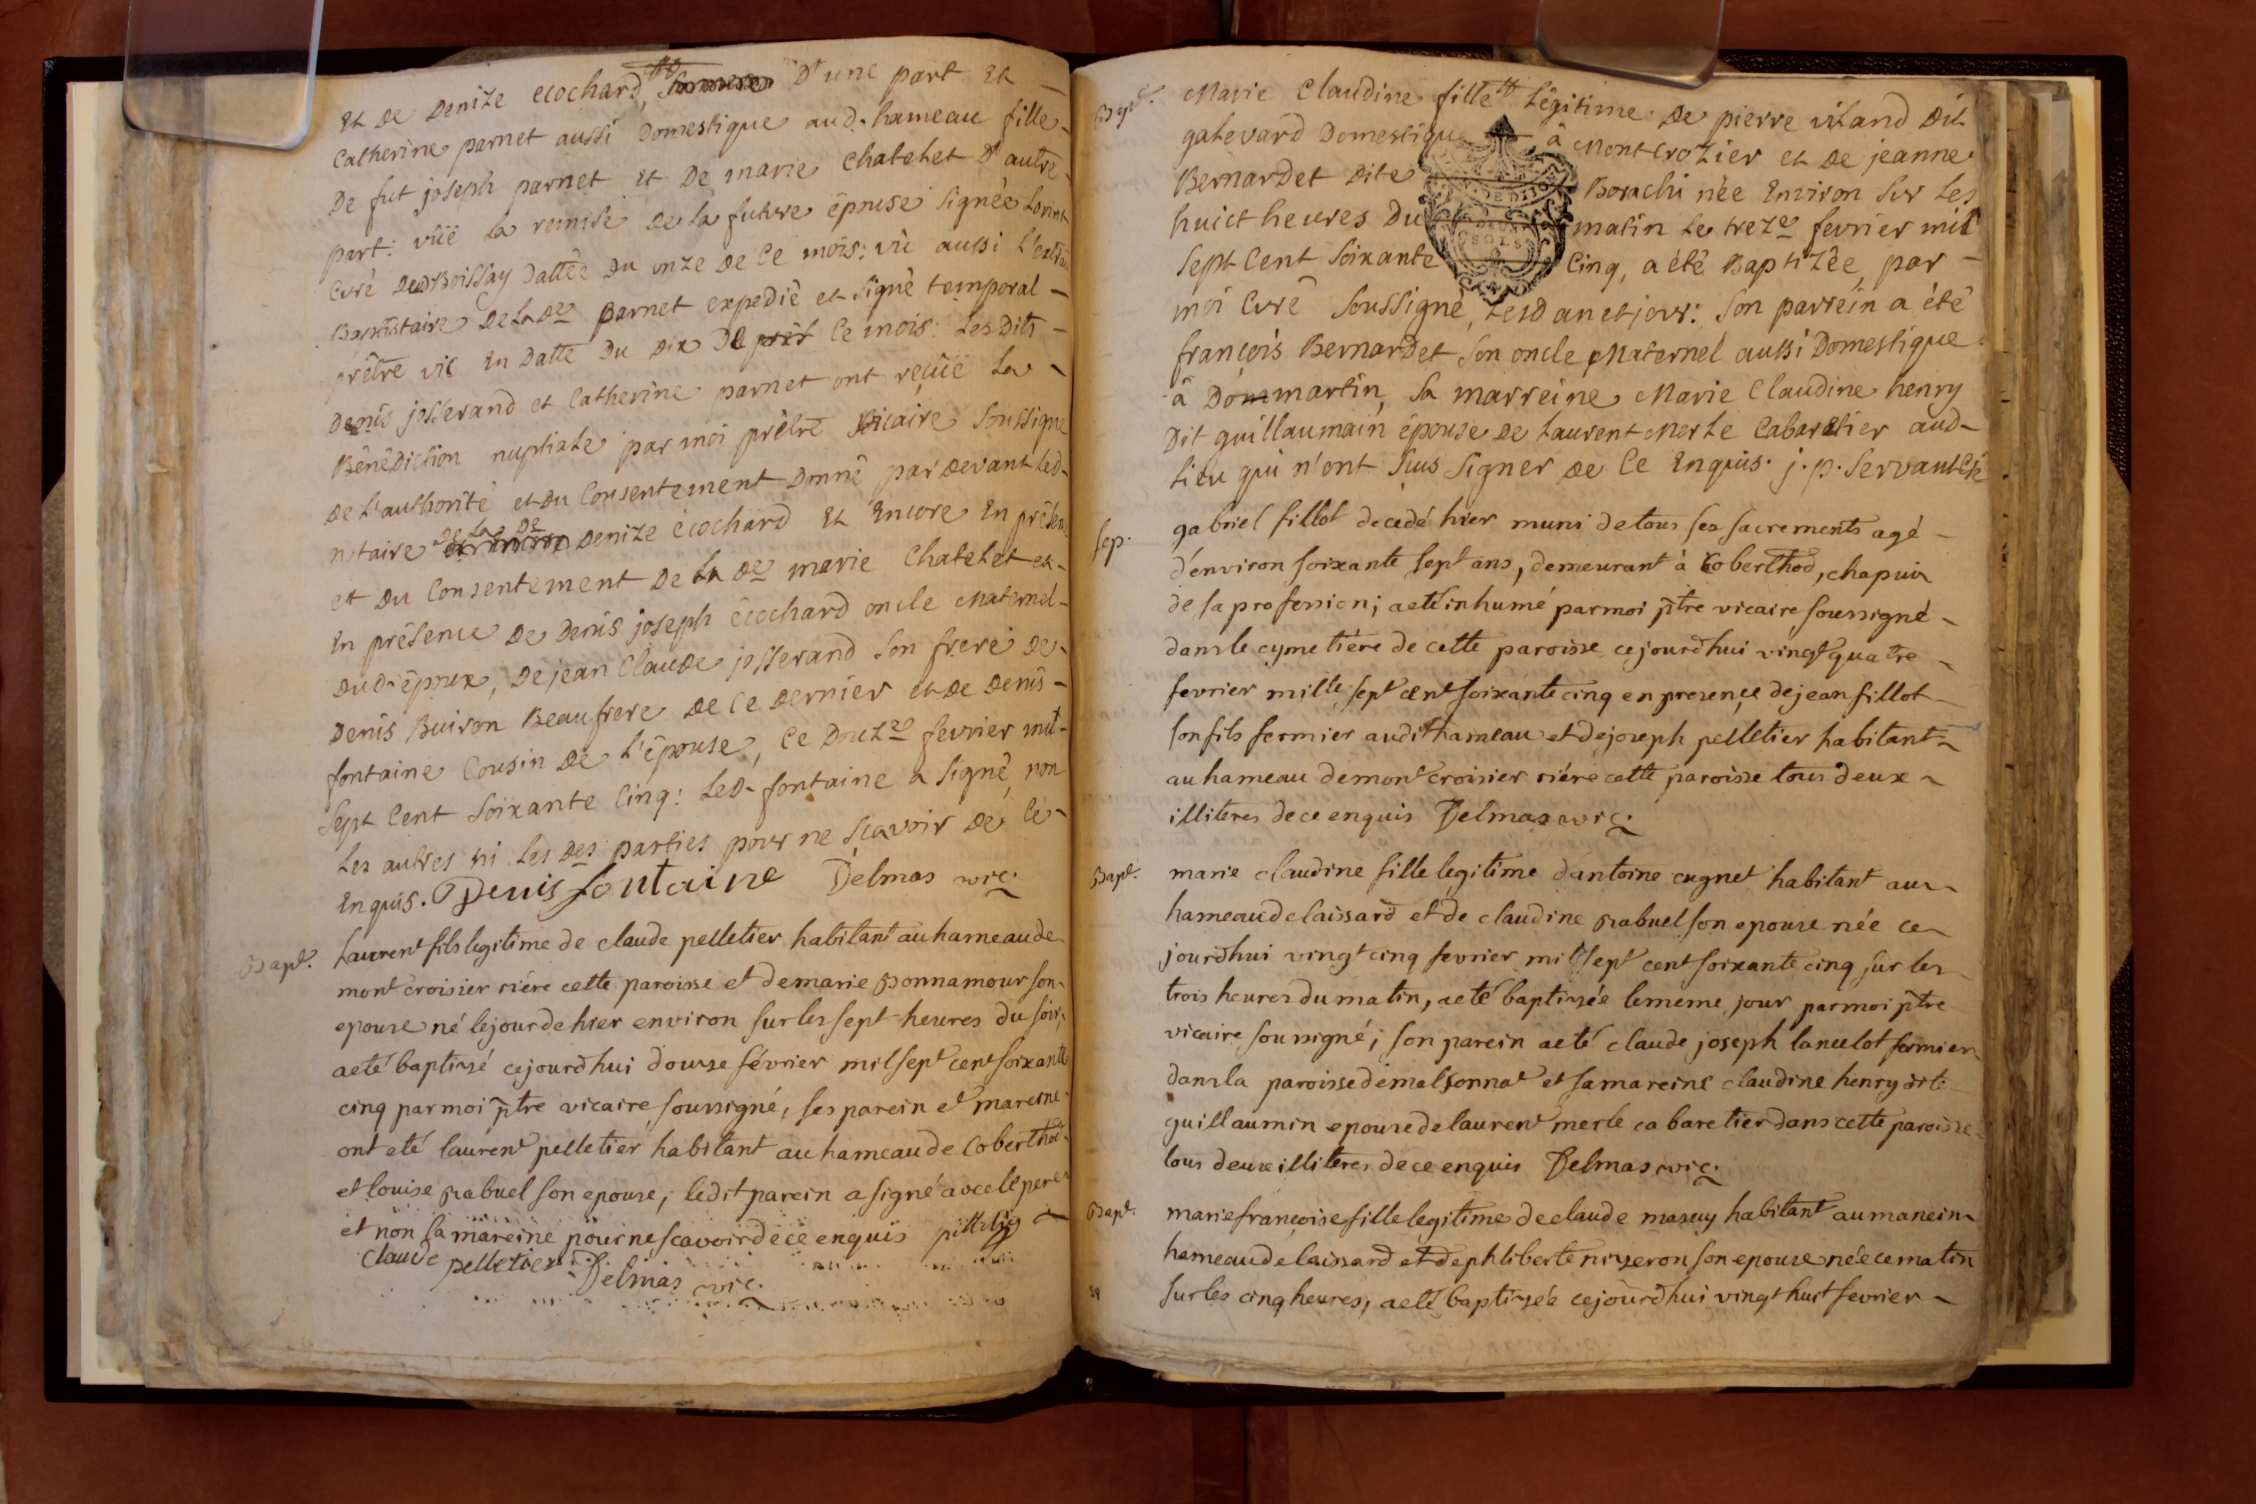 Et de Denize ecochard, D'une part Et
Catherine parnet aussi Domestique aud. hameau fille
De fut joseph parnet et De marie Chatelet D'autre
part: vüe la remise de la future épouse signée
Curé de Boissay Dattée du onze de ce mois: vü aussi l'extrait
Baptistaire de lade parnet expedié et signé temporal
prêtre vic En datte du dix de ce mois: Lesdits
Denis josserand et Catherine parnet ont reçüe La
Bénédiction nuptiale par moi prêtre vicaire soussigné
De l'authorité et du Consentement Donné par devant led.
notaire de la de Denize écochard Et Encore En présen
et du Consentement de la de marie Chatelet et
En présence de Denis joseph écochard oncle Maternel
dud. époux, De jean Claude josserand son frere de
Denis Buiron Beaufrere de ce dernier et de Denis
fontaine Cousin de l'épouse, Ce Douze fevrier mil
sept Cent soixante Cinq: Led. fontaine a signé, non
Les autres ni les des parties pour ne sçavoir de ce
Enquis. Denis fontaine Delmas vic.
Bapt. Laurent fils legitime de claude pelletier habitant au hameau de
mont croisier riére cette paroisse et de marie Bonnamour son
epouse né le jour de hier environ sur les sept heures du soir,
a eté baptisé cejourdhui douze février mil sept cent soixante
cinq par moi ptre vicaire soussigné, ses parein et mareine
ont eté laurent pelletier habitant au hameau de Coberthod
et louise rabuel son epouse, ledit parein a signé avec le pere
et non la mareine pour ne scavoir de ce enquis
Claude pelletier Delmas vic.
Bapt. Marie Claudine fille Légitime De pierre vitand Dit
galevard Domestique à Montcrozier et De jeanne
Bernardet Dite Borachi née Environ sur les
huict heures Du matin le treze fevrier mil
sept Cent soixante Cinq, a été Baptizée par
moi Curé soussigné, lesd an et jour: son parrein a été
françois Bernardet son oncle Maternel aussi Domestique
à Dommartin, sa marreine Marie Claudine henry
Dit guillaumain épouse de Laurent Merle Cabaretier aud
lieu qui n'ont sçus signer de ce Enquis. j. p. servant
sep. gabriel fillot decedé hier muni de tous ses sacrements agé
d'environ soixante sept ans, demeurant à Coberthod, chapuis
de sa profession; a eté inhumé par moi ptre vicaire soussigné
dans le cymetiére de cette paroisse cejourdhui vingt quatre
fevrier mille sept cent soixante cinq en presençe de jean fillot
son fils fermier audit hameau et de joseph pelletier habitant
au hameau de mont croisier riére cette paroisse tous deux
illiteres de ce enquis Delmas vic.
Bapt. marie claudine fille legitime d'antoine cugnet habitant au
hameau de laissard et de claudine rabuel son epouse née ce
jourdhui vingt cinq fevrier mil sept cent soixante cinq sur les
trois heures du matin, a eté baptisée le meme jour par moi ptre
vicaire soussigné; son parein a eté claude joseph lancelot fermier
dans la paroisse de malsonnat et sa mareine claudine henry dite
guillaumin epouse de laurent merle cabaretier dans cette paroisse
tous deux illiteres de ce enquis Delmas vic.
Bapt. marie françoise fille legitime de claude masuy habitant au manein
hameau de laissard et de philiberte nizeron son epouse née ce matin
sur les cinq heures, a eté baptisée cejourdhui vingt huit fevrier